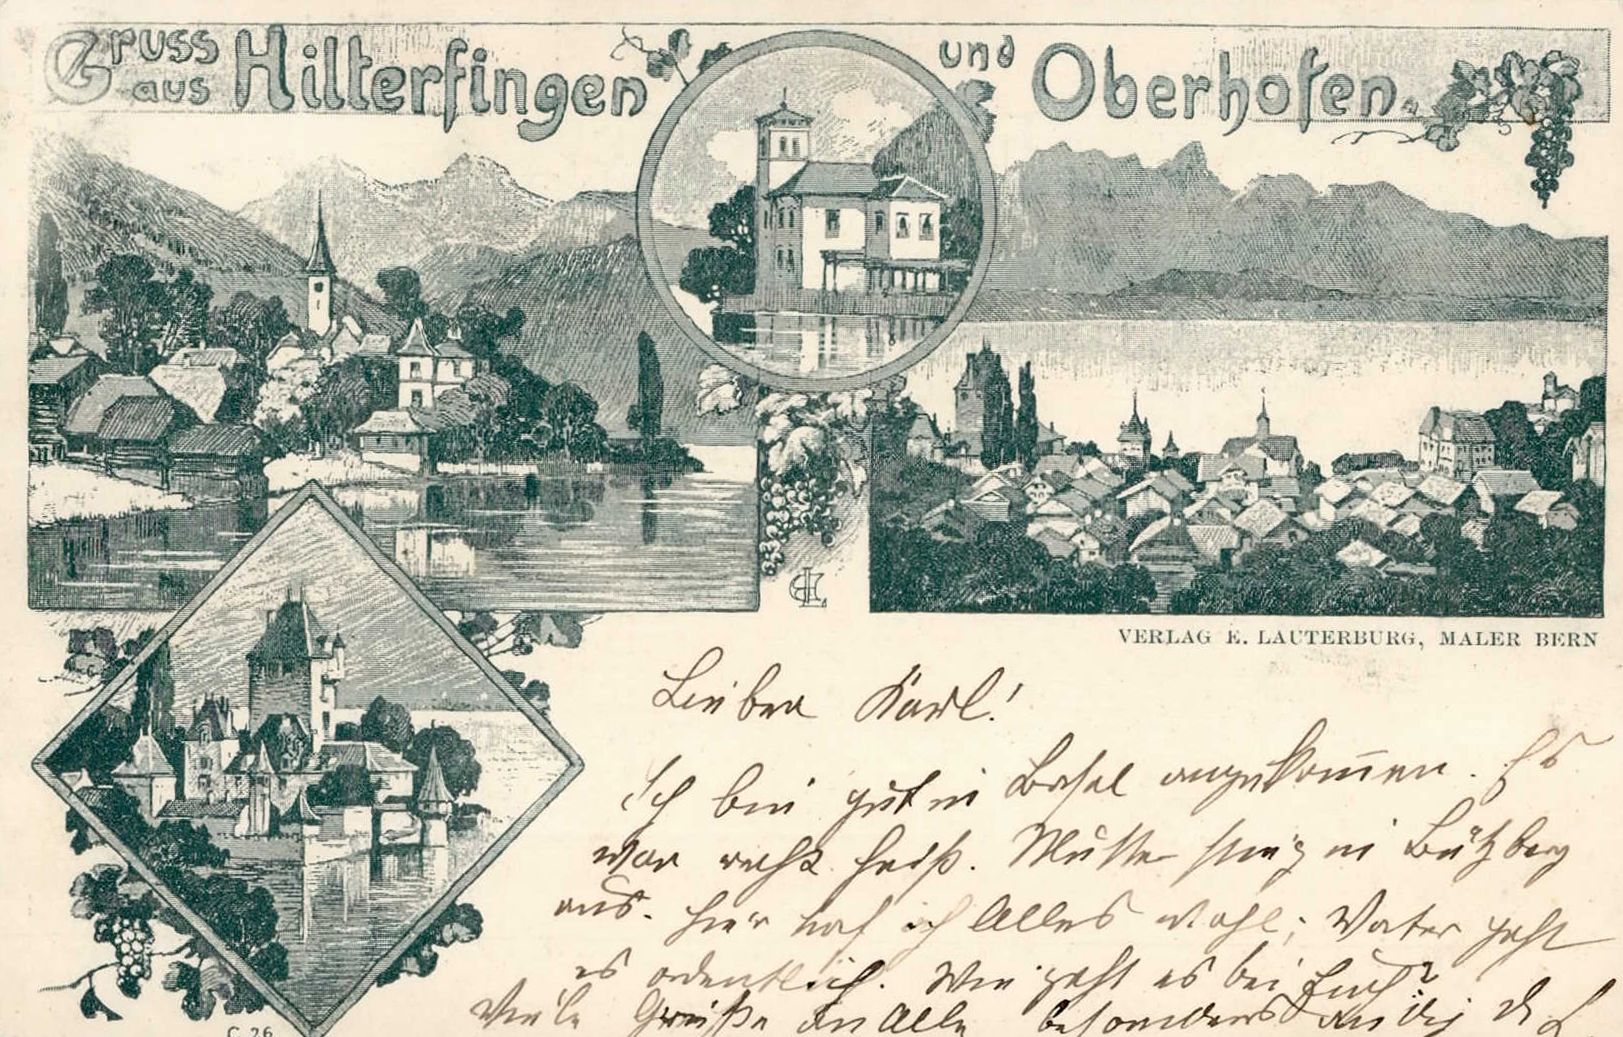 Gruss aus Hilterfingen und Oberhofen
VERLAG E. LAUTERBURG, MALER BERN
Lieber Karl!
Ich bin gut in Basel angekommen. Es
war recht heiß. Mutter stieg in Bützberg
aus. Hier traf ich Alles wohl; Vater geht
es ordentlich. Wie geht es bei Euch?
Viele Grüße an Alle besonders an dich
C. 26